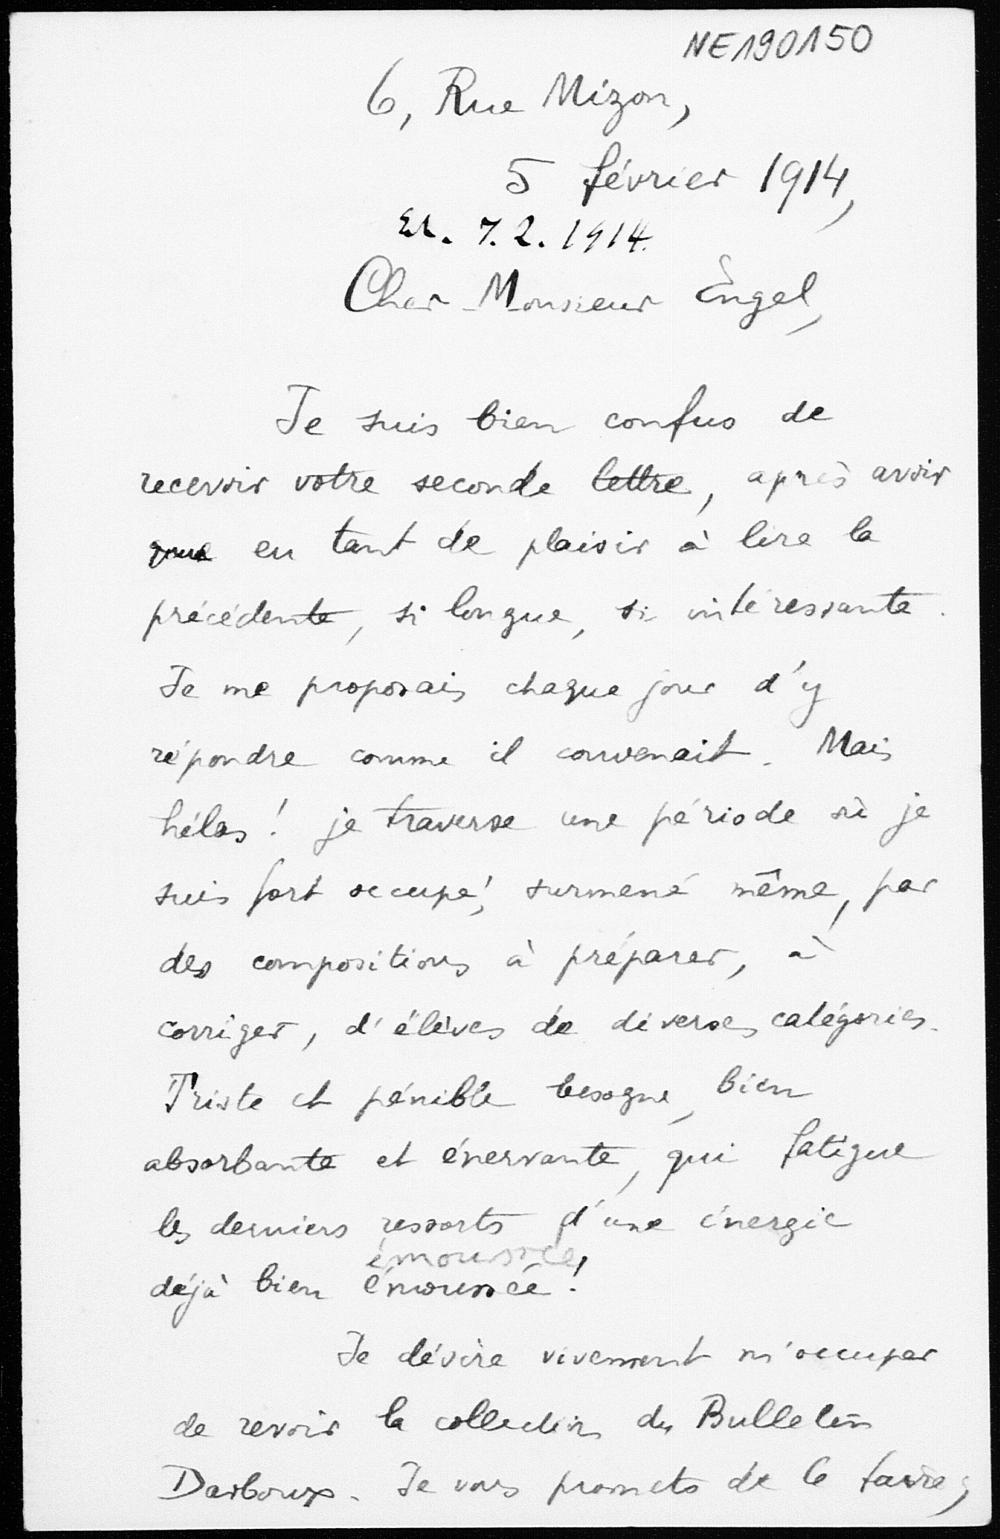 NE190150
6, Rue Mizon,
5 février 1914,
Er. 7.2.1914.
Cher Monsieur Èngel,
Je suis bien confus de
recevoir votre seconde lettre, après avoir
eu tant de plaisir à lire la
précédente, si longue, si intéressante.
Je me proposais chaque jour d'y
répondre comme il convenait. Mais
hélas! je traverse une période où je
suis fort occupé, surmené même, par
des compositions à préparer, à
corriger, d'élèves de diverses catégories.
Triste et pénible besogne, bien
absorbante et énervante, qui fatigue
les derniers ressorts d'une énergie
émoussée,
déjà bien émoussée!
Je désire vivement m'occuper
de revoir la collection du Bulletin
Darboux. Je vous promets de le faire,